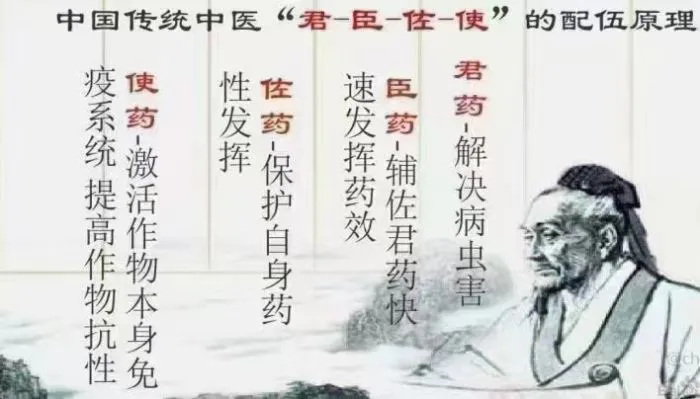 中国传统中医“君-臣-佐-使”的配伍原理
君药-解决病虫害
臣药-辅佐君药快
速发挥药效
佐药-保护自身药
性发挥
使药-激活作物本身免
疫系统 提高作物抗性
@ch